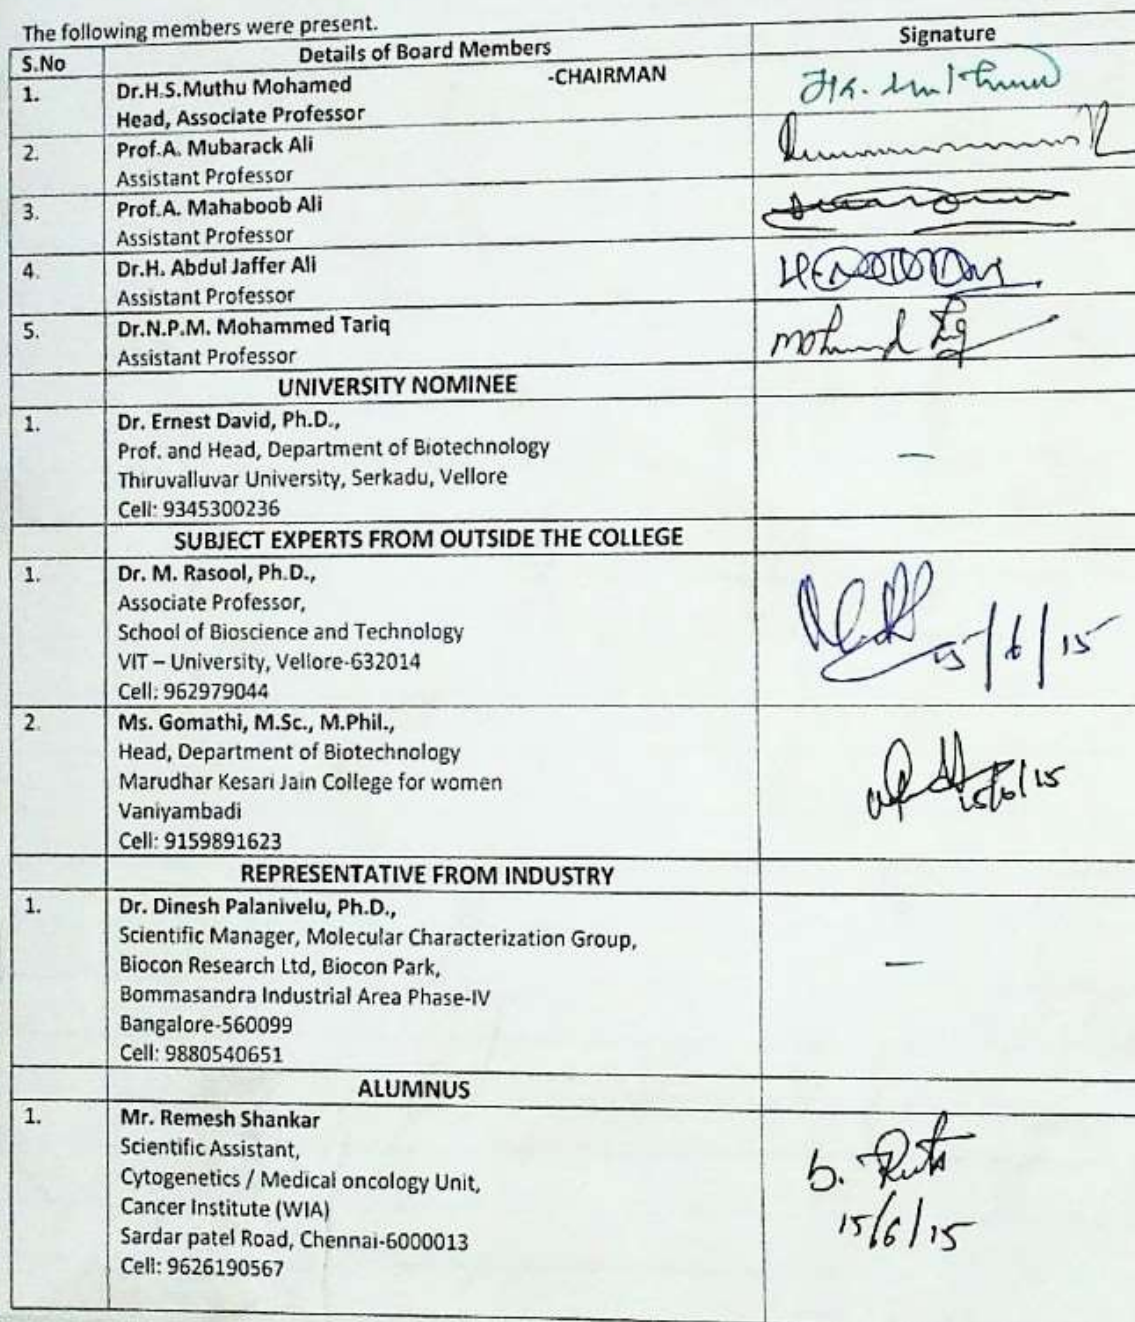 The following members were present.
S.No Details of Board Members Signature
1. Dr.H.S.Muthu Mohamed -CHAIRMAN
Head, Associate Professor
2. Prof.A. Mubarack Ali
Assistant Professor
3. Prof.A. Mahaboob Ali
Assistant Professor
4. Dr.H. Abdul Jaffer Ali
Assistant Professor
5. Dr.N.P.M. Mohammed Tariq
Assistant Professor
UNIVERSITY NOMINEE
1. Dr. Ernest David, Ph.D.,
Prof. and Head, Department of Biotechnology
Thiruvalluvar University, Serkadu, Vellore —
Cell: 9345300236
SUBJECT EXPERTS FROM OUTSIDE THE COLLEGE
1. Dr. M. Rasool, Ph.D.,
Associate Professor,
School of Bioscience and Technology 15/6/15
VIT – University, Vellore-632014
Cell: 962979044
2. Ms. Gomathi, M.Sc., M.Phil.,
Head, Department of Biotechnology
Marudhar Kesari Jain College for women 15/6/15
Vaniyambadi
Cell: 9159891623
REPRESENTATIVE FROM INDUSTRY
1. Dr. Dinesh Palanivelu, Ph.D.,
Scientific Manager, Molecular Characterization Group,
Biocon Research Ltd, Biocon Park, —
Bommasandra Industrial Area Phase-IV
Bangalore-560099
Cell: 9880540651
ALUMNUS
1. Mr. Remesh Shankar
Scientific Assistant,
Cytogenetics / Medical oncology Unit,
Cancer Institute (WIA) 15/6/15
Sardar patel Road, Chennai-6000013
Cell: 9626190567